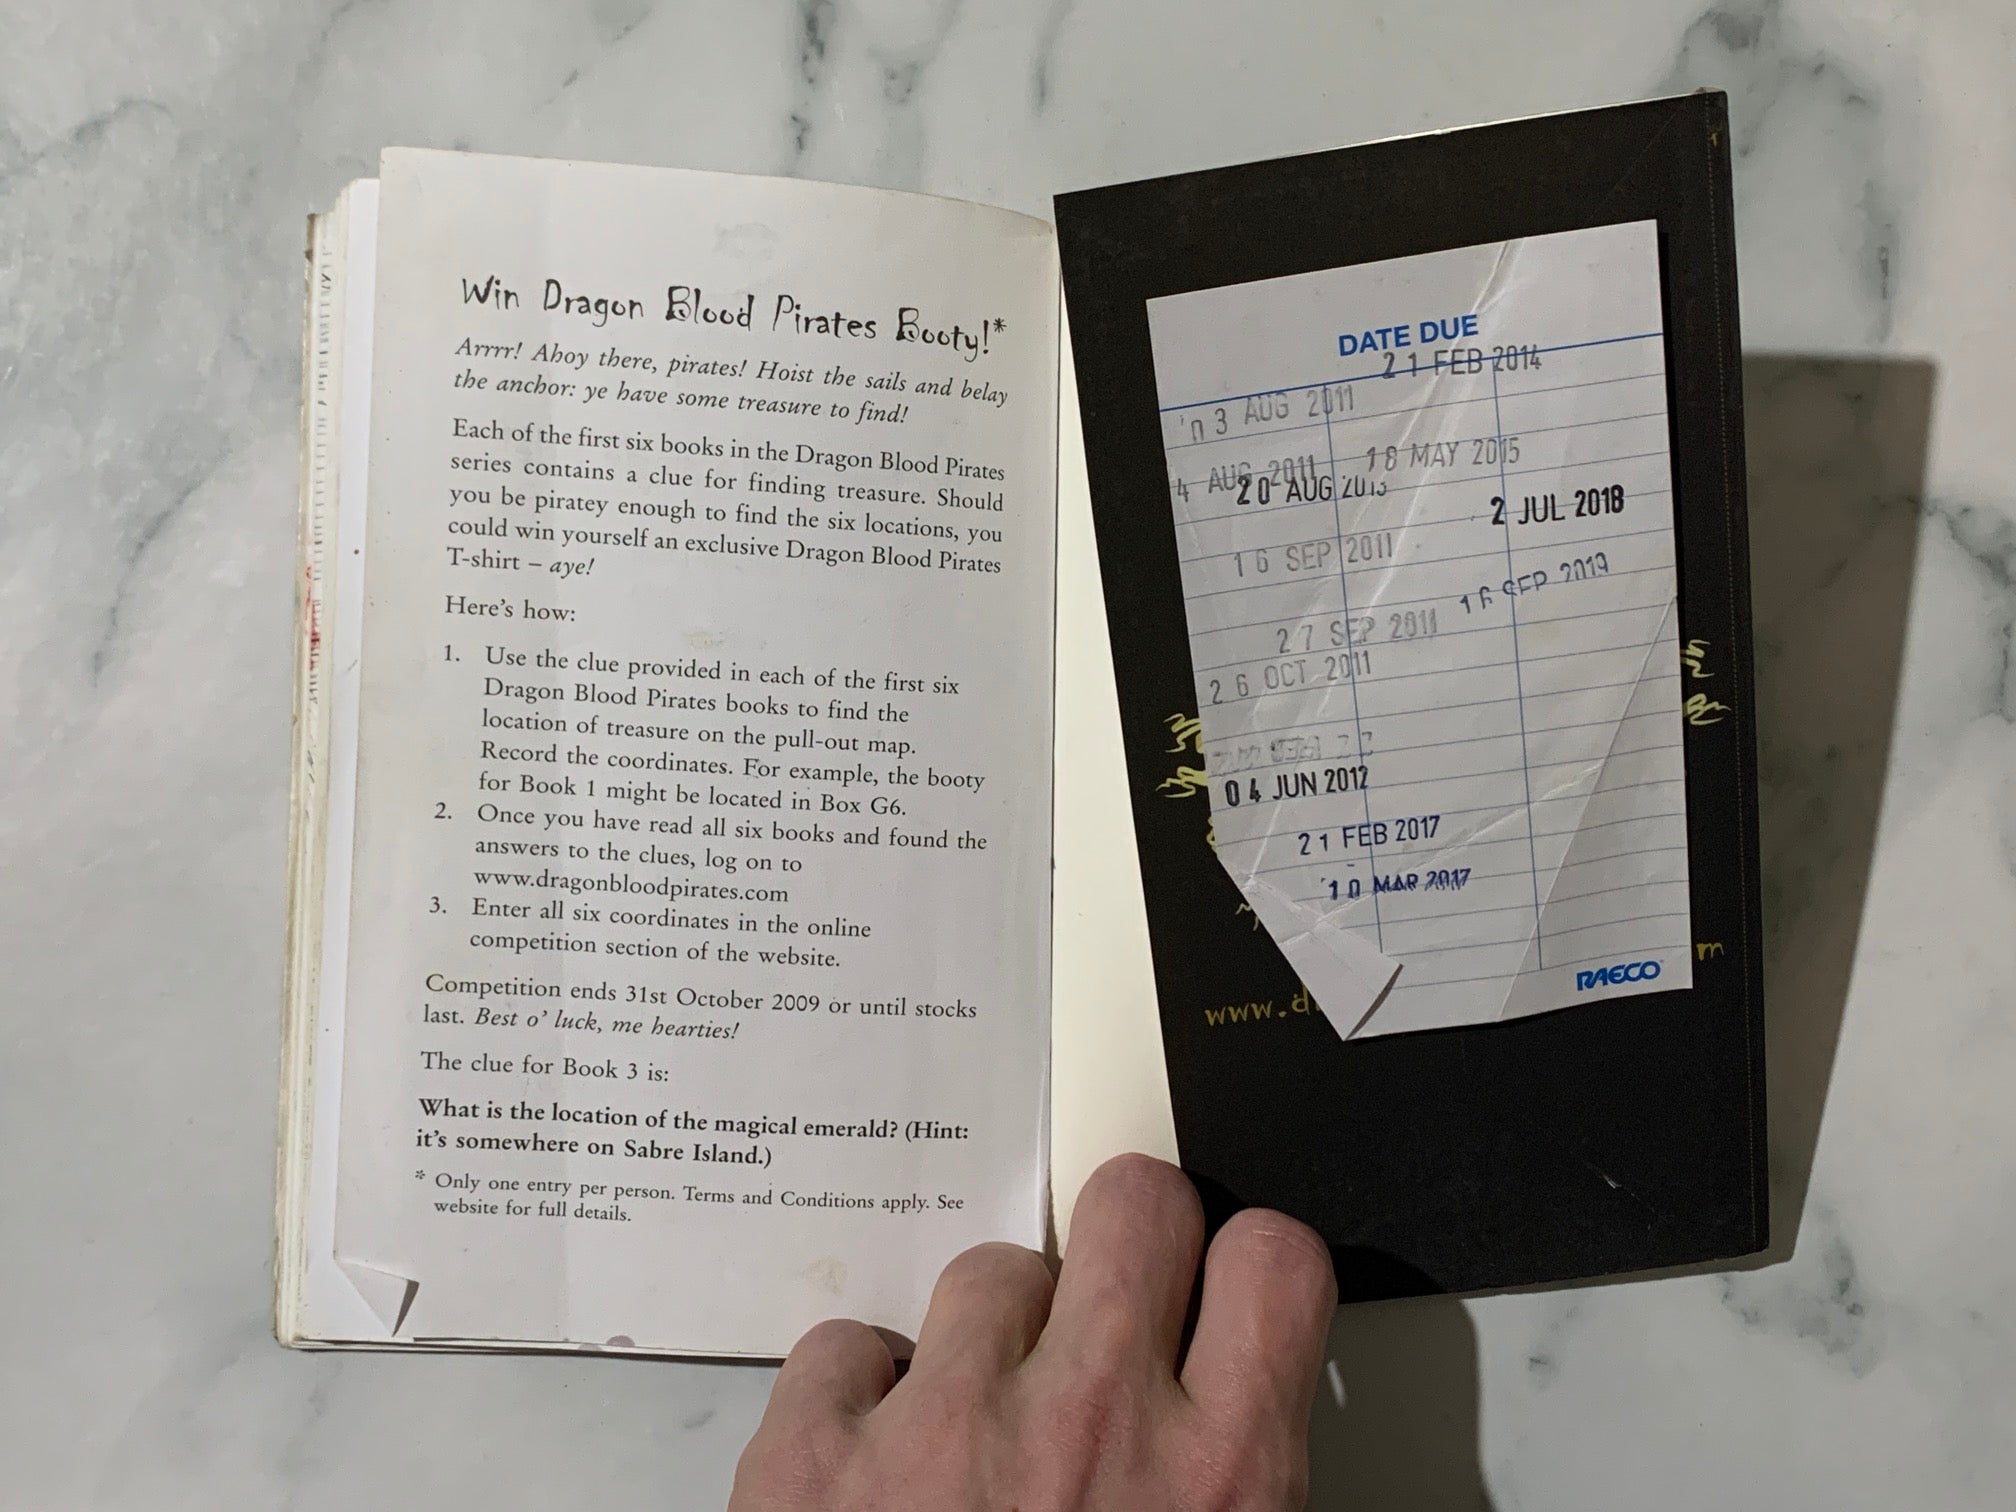 Win Dragon Blood Pirates Booty!*
Arrrr! Ahoy there, pirates! Hoist the sails and belay
the anchor: ye have some treasure to find!
Each of the first six books in the Dragon Blood Pirates
series contains a clue for finding treasure. Should
you be piratey enough to find the six locations, you
could win yourself an exclusive Dragon Blood Pirates
T-shirt – aye!
Here's how:
1. Use the clue provided in each of the first six
Dragon Blood Pirates books to find the
location of treasure on the pull-out map.
Record the coordinates. For example, the booty
for Book 1 might be located in Box G6.
2. Once you have read all six books and found the
answers to the clues, log on to
www.dragonbloodpirates.com
3. Enter all six coordinates in the online
competition section of the website.
Competition ends 31st October 2009 or until stocks
last. Best o' luck, me hearties!
The clue for Book 3 is:
What is the location of the magical emerald? (Hint:
it's somewhere on Sabre Island.)
* Only one entry per person. Terms and Conditions apply. See
website for full details.
DATE DUE
21 FEB 2014
3 AUG 2011
18 MAY 2015
4 AUG 2011
20 AUG
2 JUL 2018
16 SEP 2011
16 SEP 2019
27 SEP 2011
26 OCT 2011
04 JUN 2012
21 FEB 2017
10 MAR 2017
RAECO
www.d
m